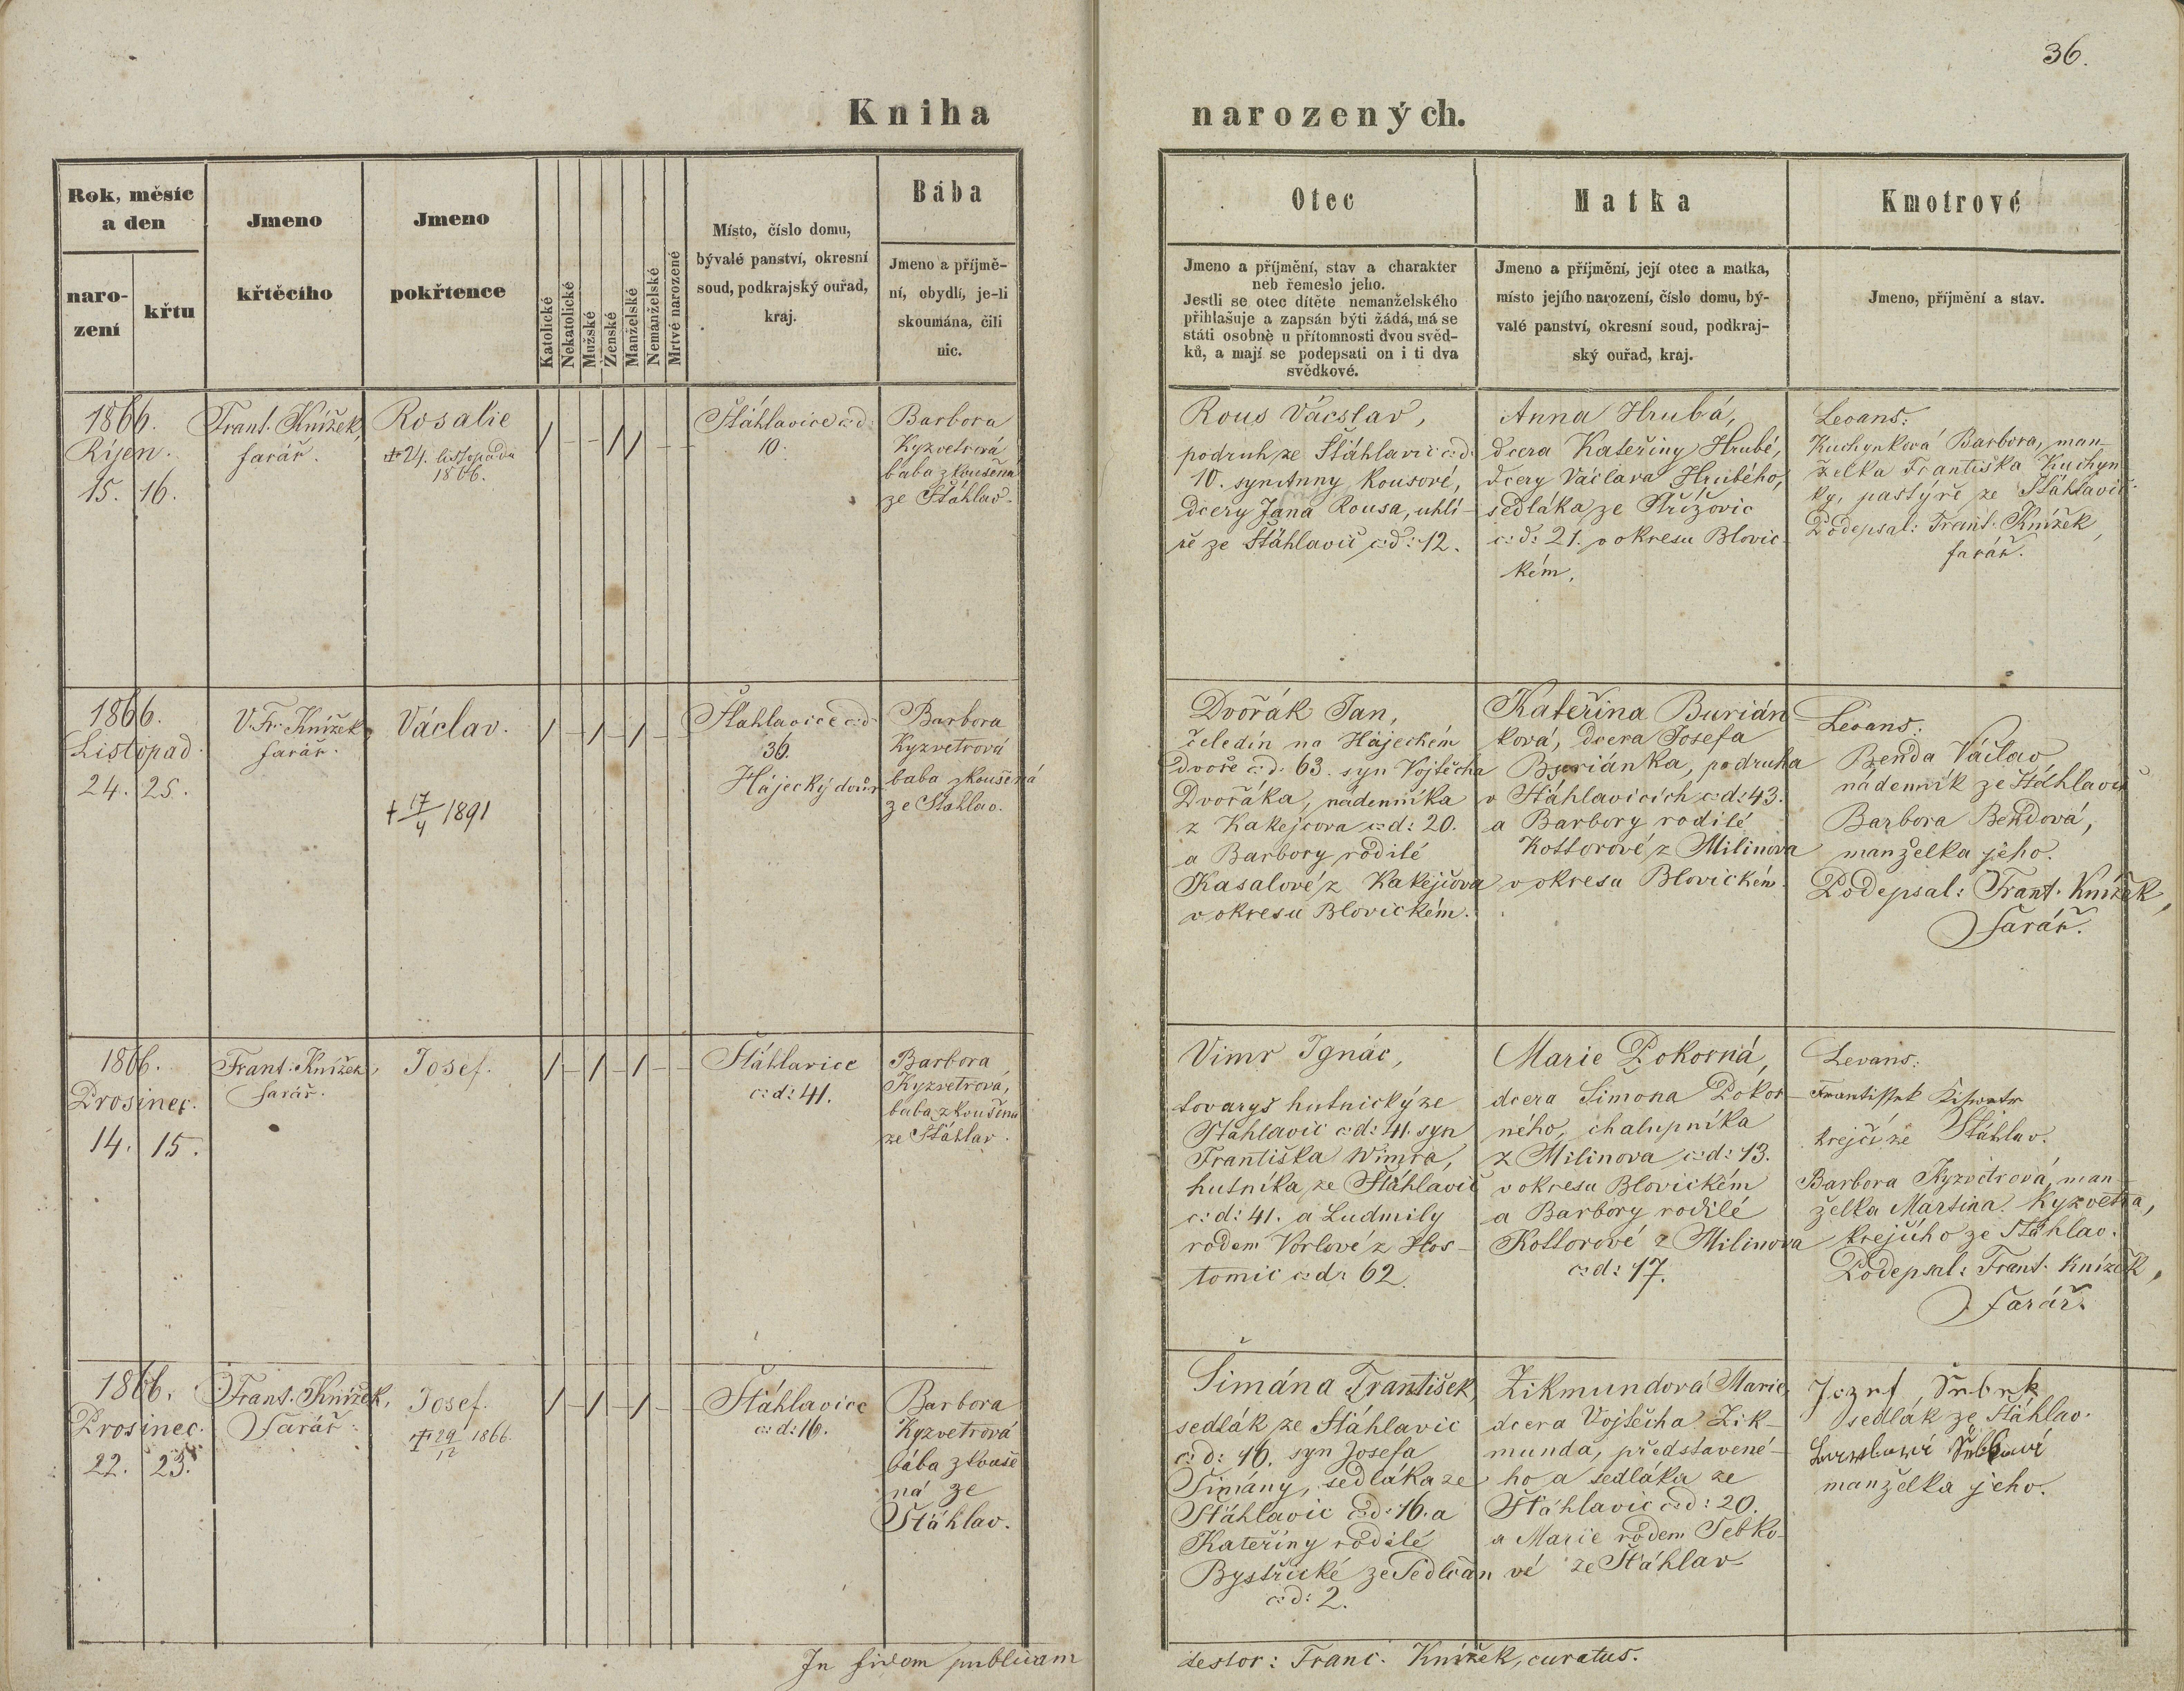 36.
Kniha narozených.
Rok, měsíc
a den
naro-
zení
křtu
Jmeno
křtěcího
Jmeno
pokřtence
Katolické
Nekatolické
Mužské
Ženské
Manželské
Nemanželské
Mrtvě narozené
Místo, číslo domu,
bývalé panství, okresní
soud, podkrajský ouřad,
kraj.
Bába
Jmeno a příjmě-
ní, obydlí, je-li
skoumána, čili
nic.
Otec
Jmeno a příjmění, stav a charakter
neb řemeslo jeho.
Jestli se otec dítěte nemanželského
přihlašuje a zapsán býti žádá, má se
státi osobně u přítomnosti dvou svěd-
ků, a mají se podepsati on i ti dva
svědkové.
Matka
Jmeno a příjmění, její otec a matka,
místo jejího narození, číslo domu, bý-
valé panství, okresní soud, podkraj-
ský ouřad, kraj.
Kmotrové
Jmeno, příjmění a stav.
1866.
Říjen.
15. 16.
Frant. Knížek,
farář.
Rosalie
+ 24. listopadu
1866.
/ - - / / - -
Štáhlavice c:d:
10.
Barbora
Kyzvetrová
baba zkoušená
ze Štáhlav.
Rous Václav,
podruh ze Štáhlavic c:d:
10. syn Anny Rousové,
dcery Jana Rousa, uhlí-
ře ze Štáhlavic c:d: 12.
Anna Hrubá,
dcera Kateřiny Hrubé,
dcery Václava Hrubého,
sedláka ze Střížovic
c:d: 21. v okresu Blovic-
kém.
Levans:
Kuchynková Barbora, man-
želka Františka Kuchyn-
ky, pastýře ze Štáhlavic
Podepsal: Frant. Knížek,
farář.
1866.
Listopad.
24. 25.
V. Fr. Knížek,
farář.
Václav.
+ 17/4 1891
/ - / - / - -
Štáhlavice c:d:
36.
Hájecký dvůr
Barbora
Kyzvetrová
baba zkoušená
ze Štáhlav.
Dvořák Jan,
čeledín na Hájeckém
dvoře c:d: 63. syn Vojtěcha
Dvořáka, nádenníka
z Kakejcova c:d: 20.
a Barbory rodilé
Kasalové z Kakejcova
v okresu Blovickém.
Kateřina Burián-
ková, dcera Josefa
Buriánka, podruha
v Štáhlavicích c:d: 43.
a Barbory rodilé
Kottorové z Milinova
v okresu Blovickém.
Levans:
Benda Václav,
nádenník ze Štáhlavic
Barbora Bendová,
manželka jeho.
Podepsal: Frant. Knížek,
farář.
1866.
Prosinec.
14. 15.
Frant. Knížek,
farář.
Josef.
/ - / - / - -
Štáhlavice
c:d: 41.
Barbora
Kyzvetrová,
baba zkoušená
ze Štáhlav.
Vimr Ignác,
tovaryš hutnický ze
Štáhlavic c:d: 41. syn
Františka Wimra,
hutníka ze Štáhlavic
c:d: 41. a Ludmily
rodem Vorlové z Hos-
tomic c:d: 62.
Marie Pokorná,
dcera Šimona Pokor-
ného, chalupníka
z Milinova c:d: 13.
v okresu Blovickém
a Barbory rodilé
Kottorové z Milinova
c:d: 17.
Levans:
krejčí ze Štáhlav.
Barbora Kyzvetrová, man-
želka Martina Kyzvetra,
krejčího ze Štáhlav.
Podepsal: Frant. Knížek,
farář.
1866.
Prosinec.
22. 23.
Frant. Knížek,
Farář.
Josef.
+ 29/12 1866.
/ - / - / - -
Štáhlavice
c:d: 16.
Barbora
Kyzvetrová
bába zkouše
ná ze
Štáhlav.
Šimána František,
sedlák ze Štáhlavic
c:d: 16. syn Josefa
Šimány, sedláka ze
Štáhlavic c:d: 16. a
Kateřiny rodilé
Bystřické ze Sedlčan
c:d: 2.
Zikmundová Marie,
dcera Vojtěcha Zik-
munda, představené-
ho a sedláka ze
Štáhlavic c:d: 20.
a Marie rodem Tebko-
vé ze Štáhlav
sedlák ze Štáhlav.
manželka jeho.
In fidem publicam testor: Franc. Knížek, curatus.